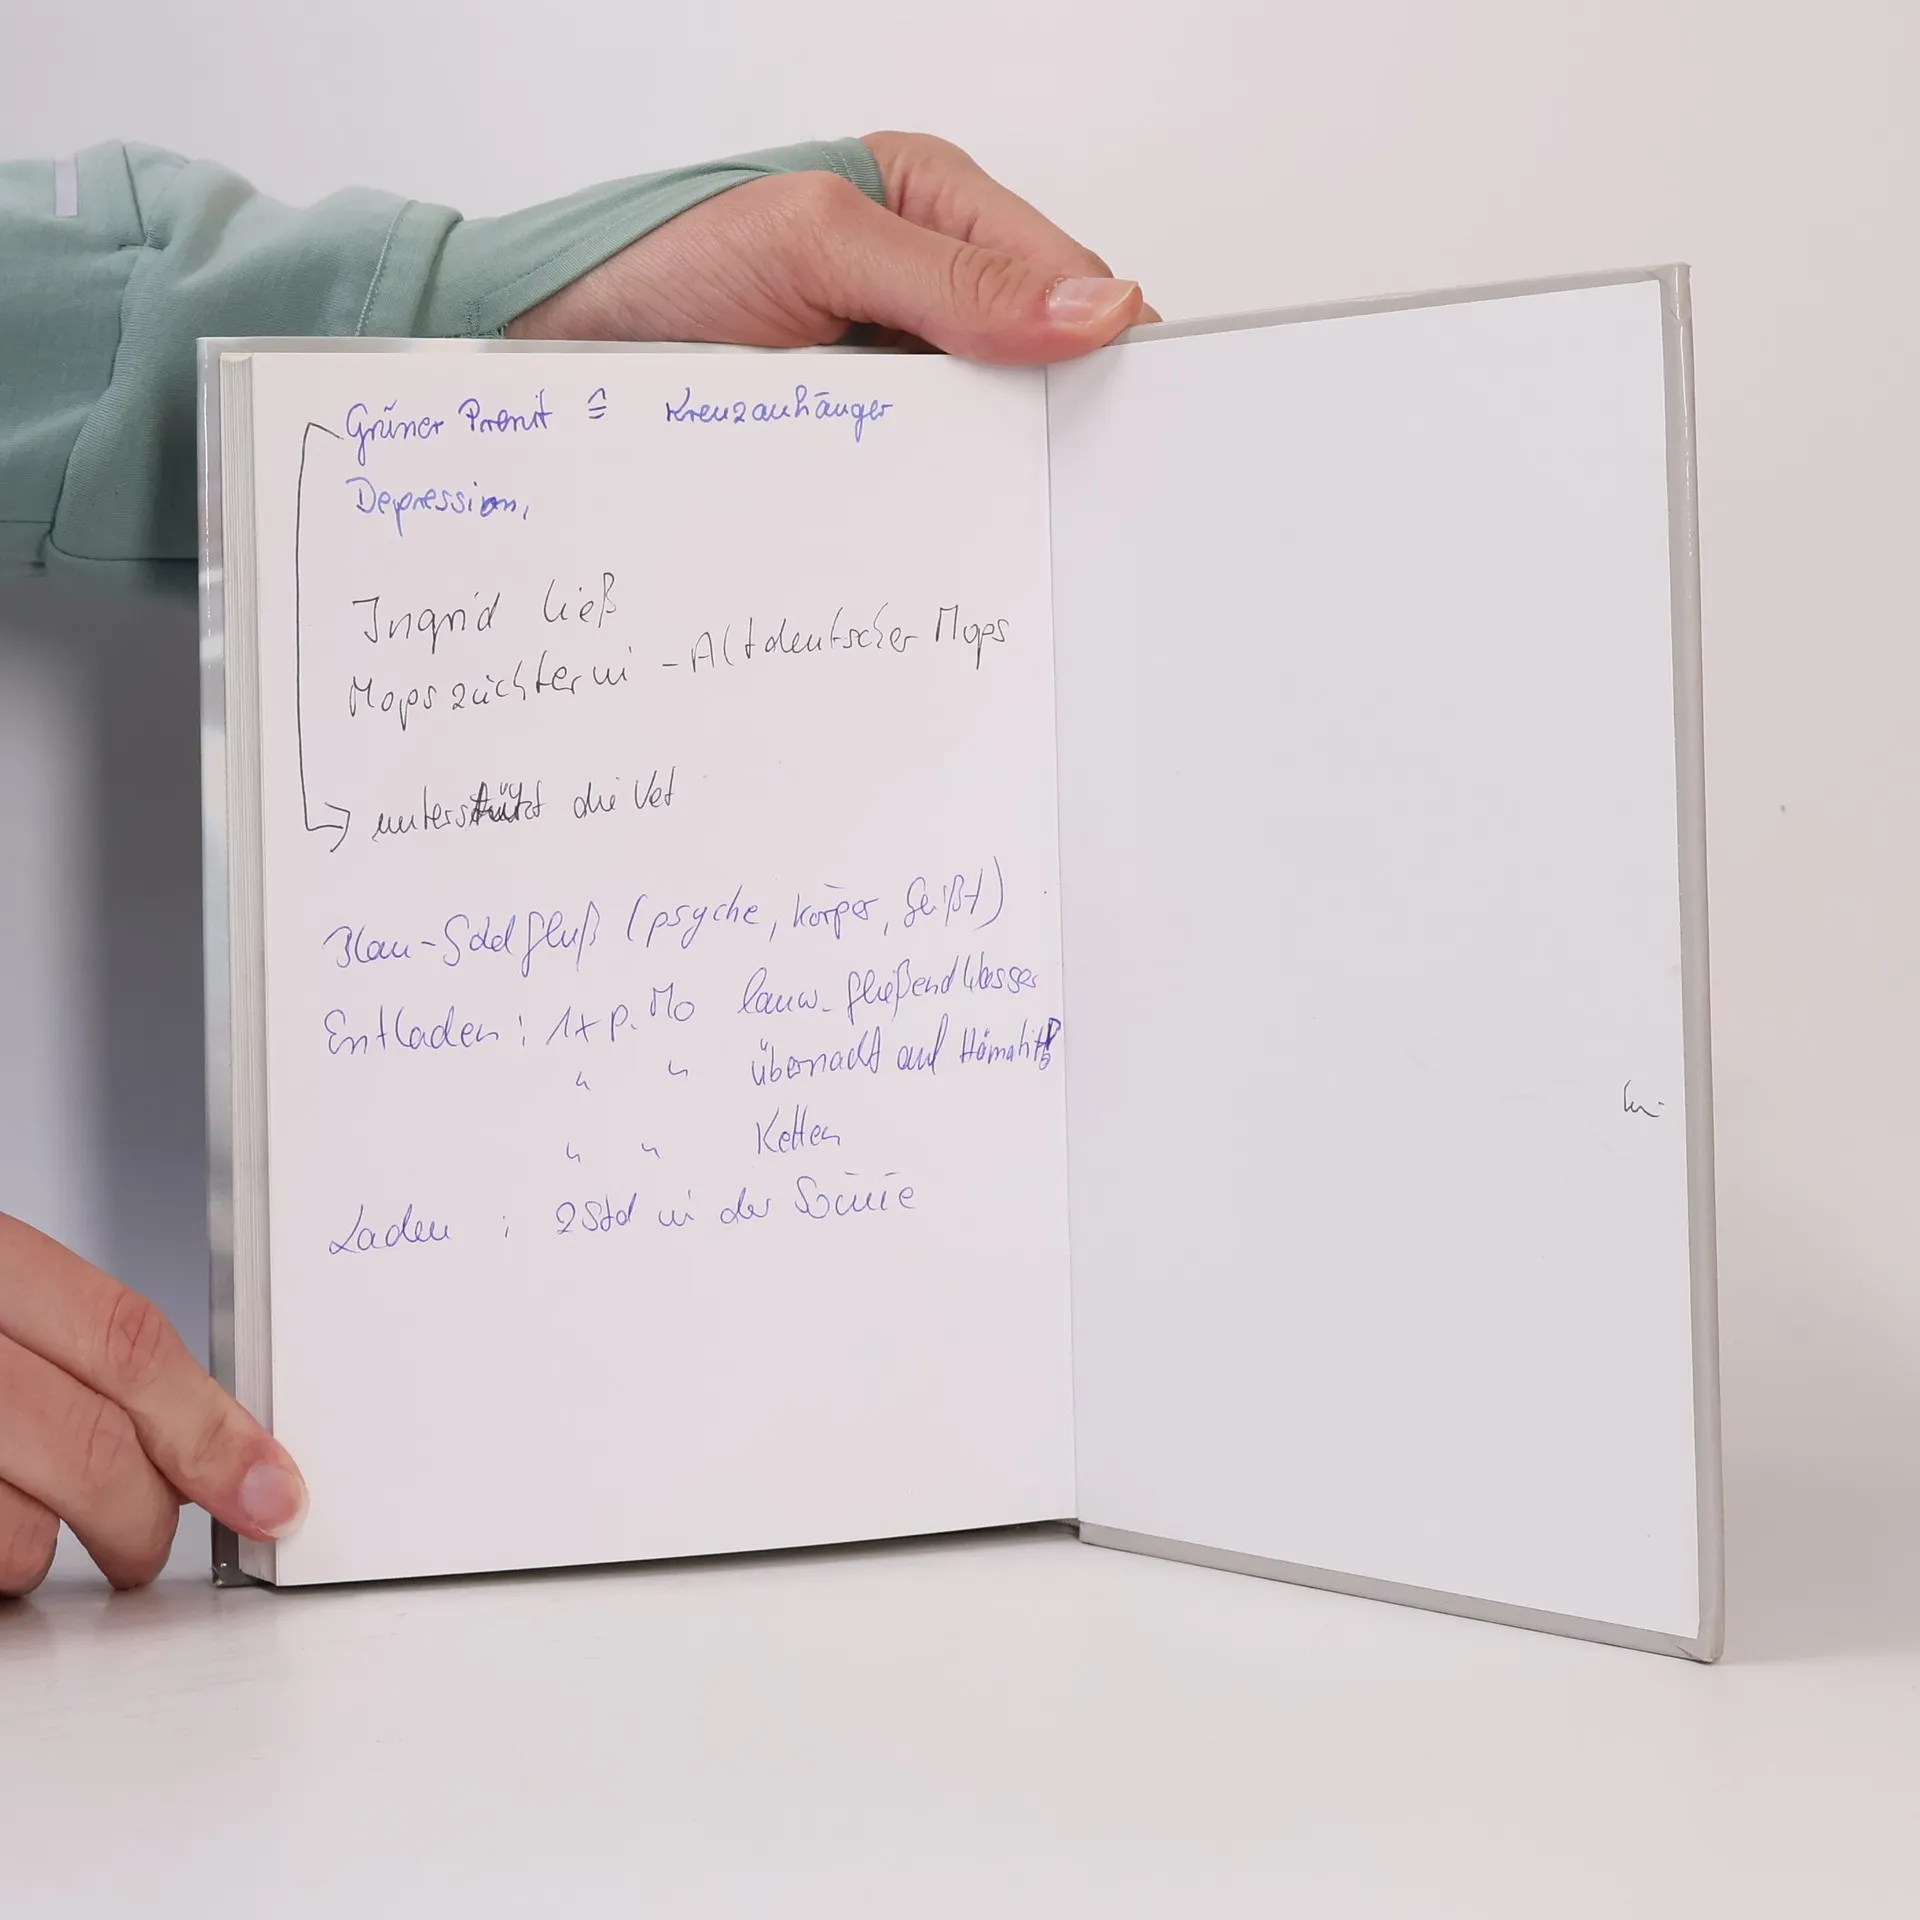 Grüner Prenit ≙ Kreuzanhänger
Depression,
Ingrid ließ
Mopszüchterin - Altdeutscher Mops
unterstützt die Vet
Blau - fluß (psyche, Körper, Geißt)
Entladen : 1x p. Mo lauw. fließend Wasser
" " übernacht auf Hämatit
" " Ketten
Laden : 2 Std in der Sonne